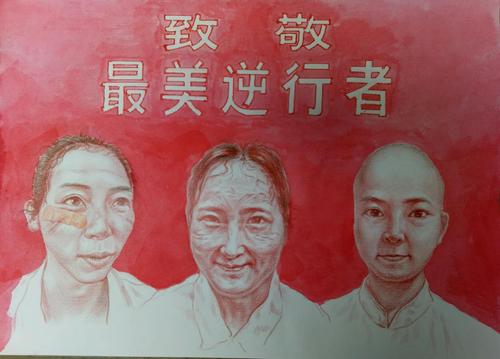 致敬
最美逆行者